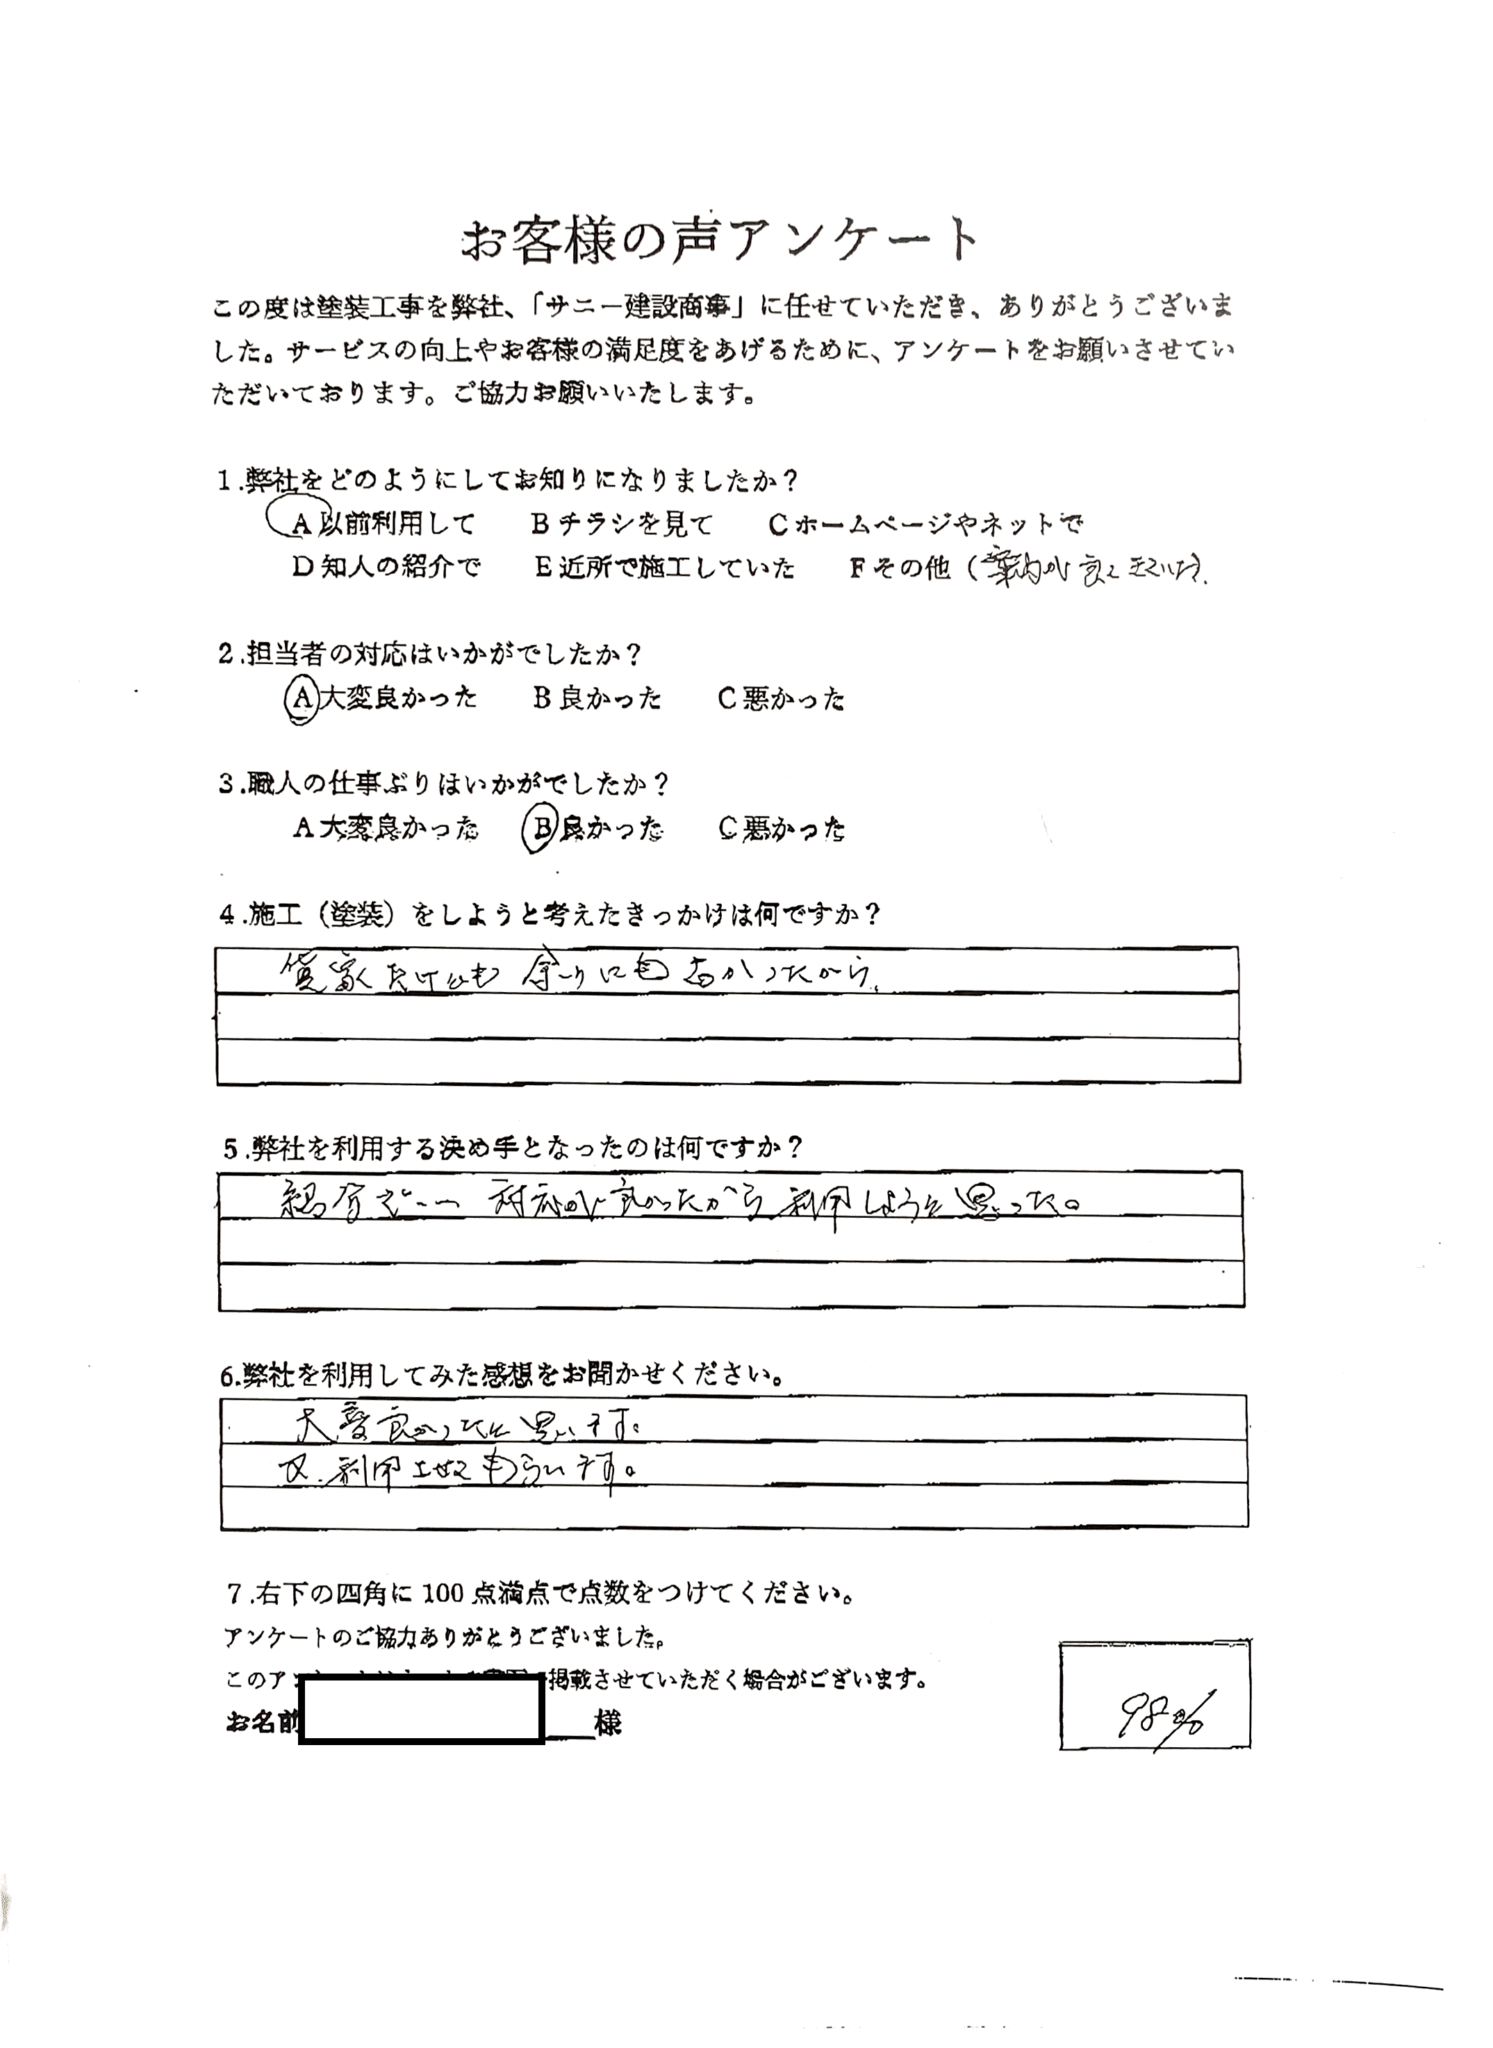 お客様の声アンケート
この度は塗装工事を弊社、「サニー建設商事」に任せていただき、ありがとうございま
した。サービスの向上やお客様の満足度をあげるために、アンケートをお願いさせてい
ただいております。ご協力お願いいたします。
1.弊社をどのようにしてお知りになりましたか？
A 以前利用して B チラシを見て C ホームページやネットで
D 知人の紹介で E 近所で施工していた F その他（
2.担当者の対応はいかがでしたか？
A 大変良かった B 良かった C 悪かった
3.職人の仕事ぶりはいかがでしたか？
A 大変良かった B 良かった C 悪かった
4.施工（塗装）をしようと考えたきっかけは何ですか？
貸家だけれども余りにも古かったから、
5.弊社を利用する決め手となったのは何ですか？
対応が良かったから利用しようと思った。
6.弊社を利用してみた感想をお聞かせください。
大変良かったと思います。
又、利用させてもらいます。
7.右下の四角に 100 点満点で点数をつけてください。
アンケートのご協力ありがとうございました。
このア 掲載させていただく場合がございます。
お名前 様
98%